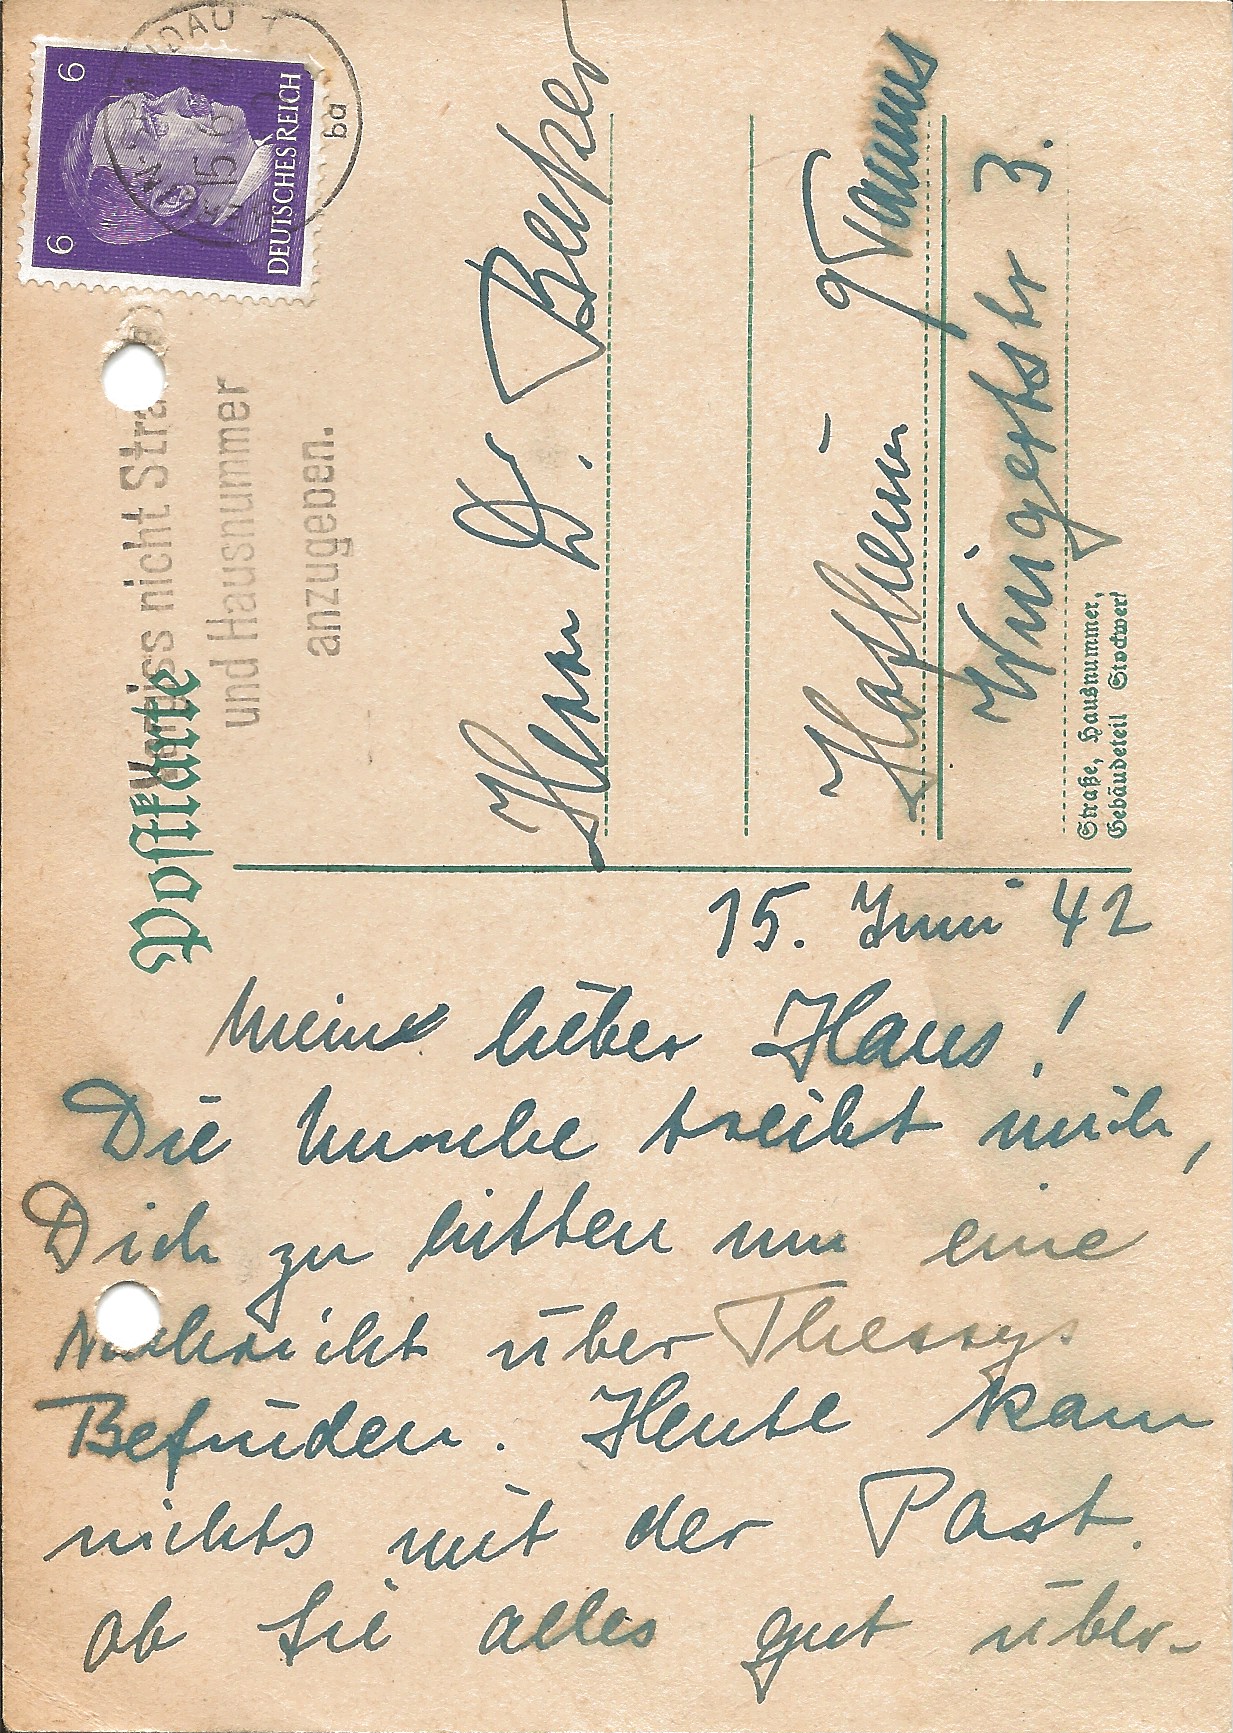 6 6
DEUTSCHES REICH
15.6
ba
Postkarte
Vergiss nicht Straße
und Hausnummer
anzugeben.
Herrn Dr. Becker
Hofheim Taunus
Wingertstr 3.
Straße, Hausnummer,
Gebäudeteil Stockwerk
15. Juni 42
Mein lieber Hans!
Die Unruhe treibt mich,
Dich zu bitten um eine
Nachricht über Thessys
Befinden. Heute kam
nichts mit der Post.
ob Sie alles gut über-